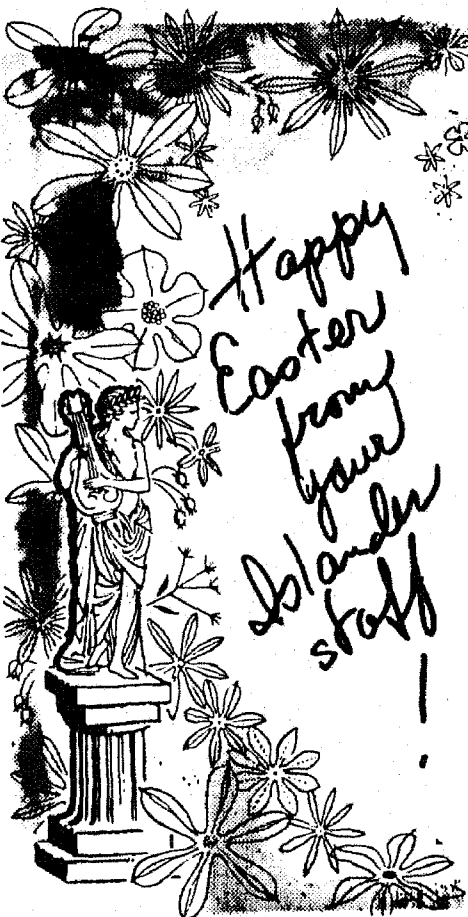 Happy
Easter
from
your
Islander
staff!